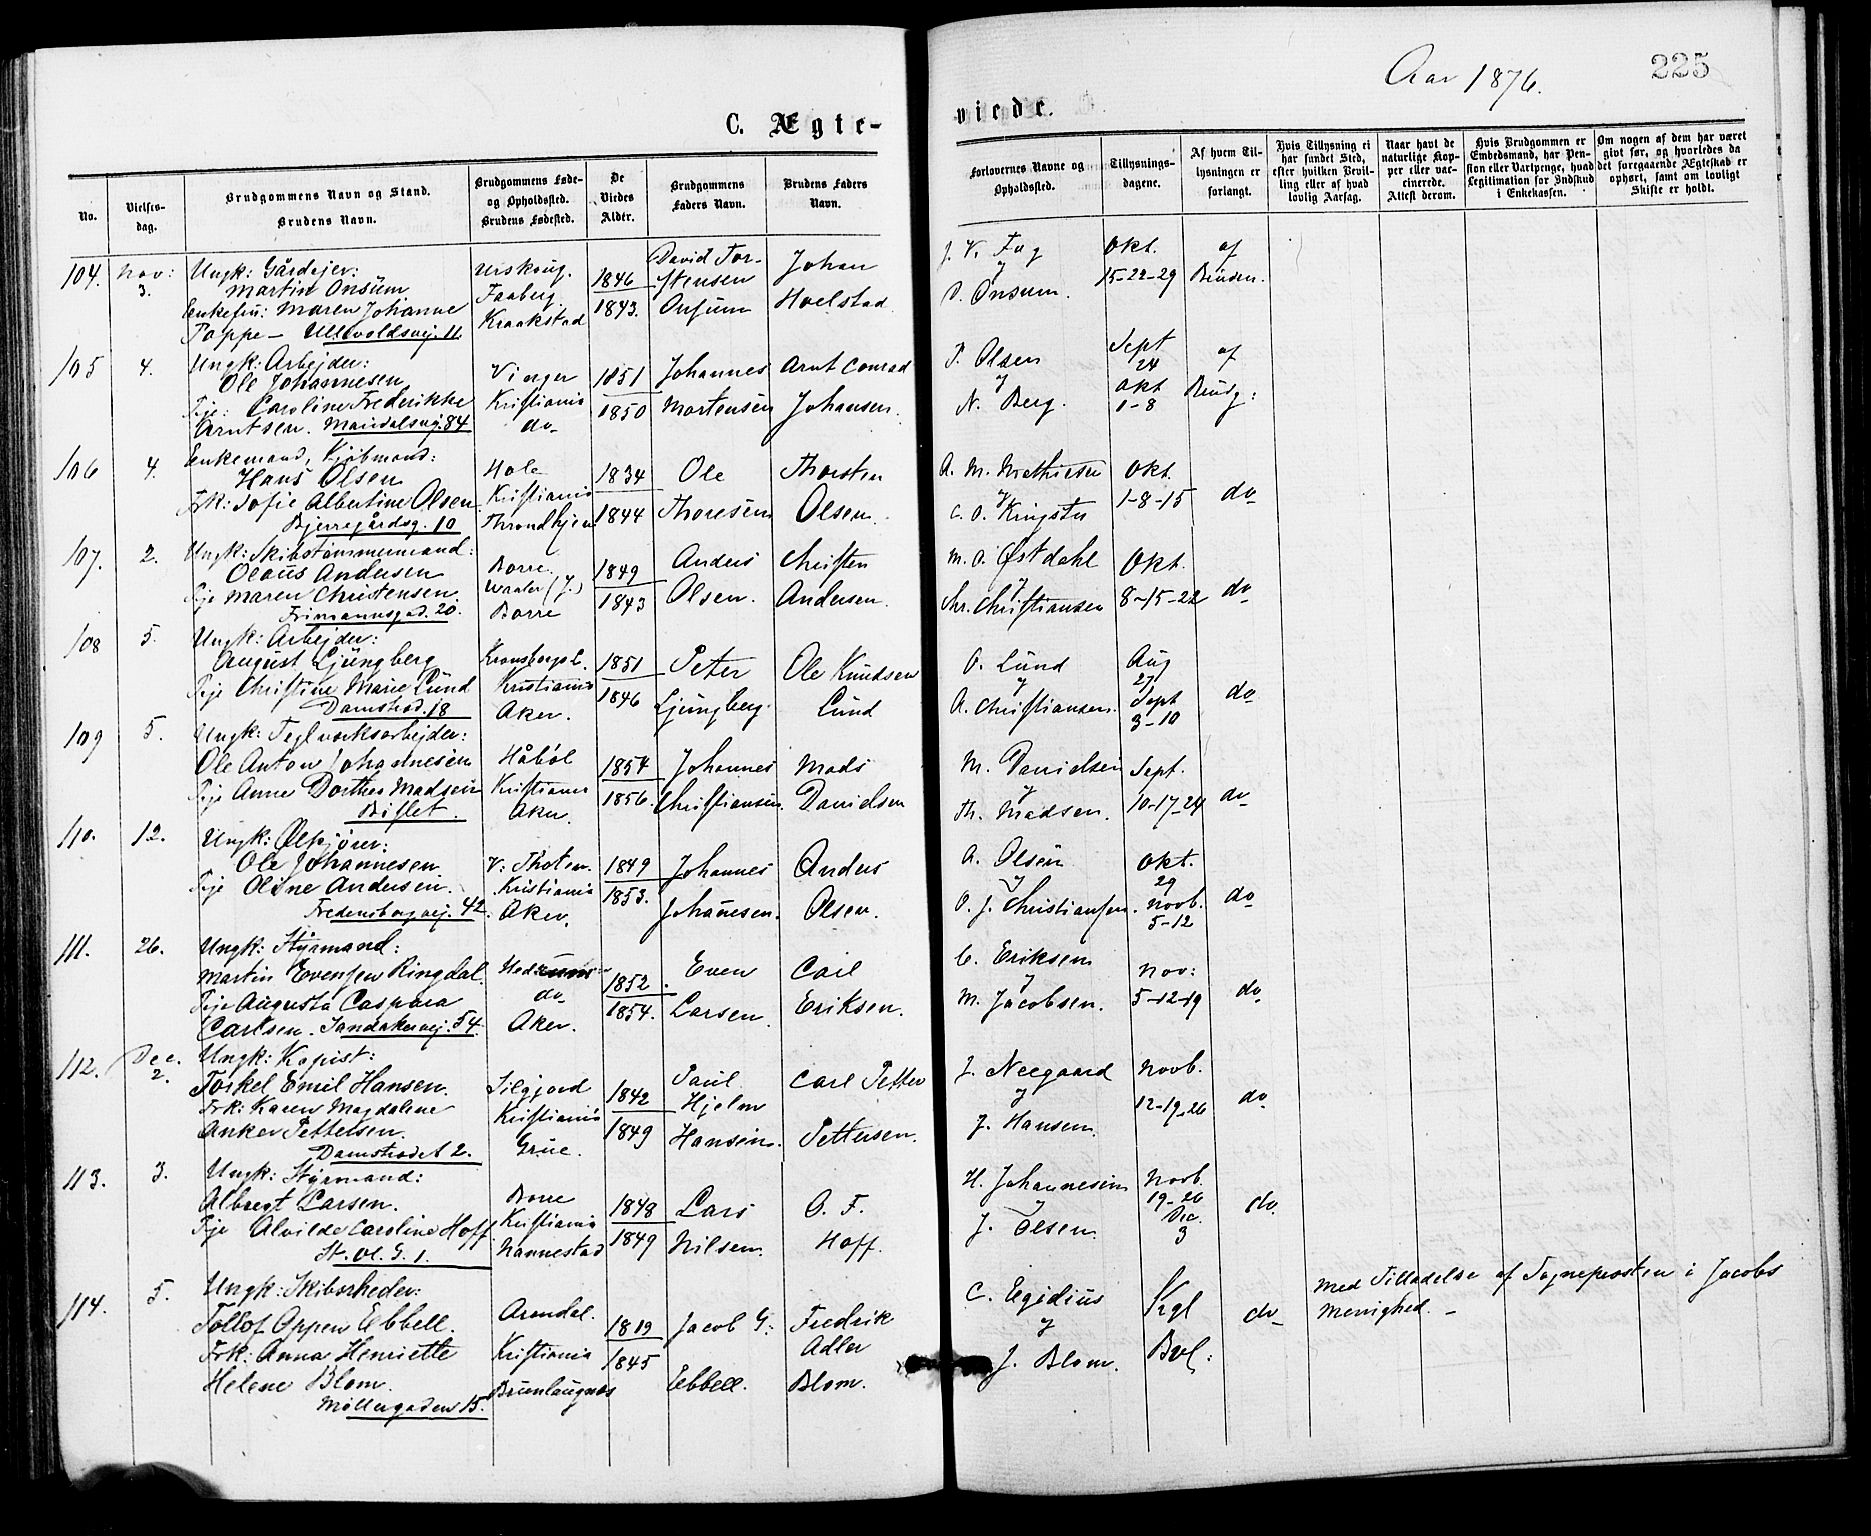 Aar 1876.
225
C. Ægte-
viede.
No.
Vielses-
dag.
Brudgommens Navn og Stand.
Brudens Navn.
Brudgommens Føde-
og Opholdssted.
Brudens Fødested.
De
Viedes
Alder.
Brudgommens
Faders Navn.
Brudens Faders
Navn.
Forlovernes Navne og
Opholdssted.
Tillysnings-
dagene.
Af hvem Til-
lysningen er
forlangt.
Hvis Tillysning ei
har fundet Sted,
efter hvilken Bevil-
ling eller af hvad
lovlig Aarsag.
Naar havt de
naturlige Kop-
per eller vac-
cinerede.
Attest derom.
Hvis Brudgommen er
Embedsmand, har Pen-
sion eller Vartpenge, hvad
Legitimation for Indskud
i Enkekassen.
Om nogen af dem har været
givt før, og hvorledes da
det foregaaende Ægteskab er
ophørt, samt om lovligt
Skifte er holdt.
104. Nov: 3.
Ungk: Gårdejer:
Martin Onsum
Enkefru: Maren Johanne
Poppe - Ullevoldsvej. 11.
Urskoug.
Faaberg.
Kraakstad
1846
1843.
David Tor-
stensen
Onsum
Johan
Hoelstad
J. V. Fag
&
O. Onsum.
Okt.
15-22-29
af
Bruden.
105 4.
Ungk: Arbejder:
Ole Johannesen
Pije: Caroline Frederikke
Arntsen. Maridalsvej. 84
Vinger
Kristiania
do
1851
1850
Johannes
Mortensen
Arnt Conrad
Johansen.
P. Olsen
&
N. Berg.
Sept
24
Okt
1-8
af
Brudg:
106 4.
Enkemand, Kjøbmand:
Hans Olsen
Frk: Sofie Albertine Olsen
Bjerregårdsg. 10
Hole
Kristiania
Throndhjem
1834
1844
Ole
Thoresen
Thorsten
Olsen.
A. M. Mathiesen
&
C. O. Kringster
Okt.
1-8-15
do
107. 2.
Ungk: Skibstømmermand:
Olaus Andersen
Pije Maren Christensen.
Frimannsgad. 20.
Borre.
Waaler (J.)
Borre
1849
1843
Anders
Olsen.
Christen
Andersen.
M. O. Østdahl
&
Chr. Christiansen
Okt.
8-15-22
do
108 5.
Ungk: Arbejder:
August Ljungberg
Pije Christine Marie Lund
Damstræd. 18
Kronsborgsl.
Kristiania
Aker.
1851
1846
Peter
Ljungberg.
Ole Knudsen
Lund
O. Lund
&
A. Christiansen.
Aug
27
Sept
3-10
do
109 5.
Ungk: Teglværksarbejder:
Ole Anton Johannesen
Pije Anne Dorthea Madsen
Bislet.
Håbøl
Kristiania
Aker.
1854
1856.
Johannes
Christiansen.
Mads
Danielsen
M. Danielsen
&
Th. Madsen.
Sept.
10-17-24
do
110. 12.
Ungk: Ølkjører:
Ole Johannesen.
Pije Oline Andersen.
Fredensborgvej. 42.
V: Thoten.
Kristiania
Aker.
1849
1853.
Johannes
Johanesen.
Anders
Olsen.
A. Olsen
&
O. J. Christiansen.
Okt.
29
Novb.
5-12
do
111. 26.
Ungk: Styrmand:
Martin Evensen Ringdal.
Pije Augusta Caspara
Carlsen. Sandakervej. 54.
do
Aker.
1852.
1854.
Even
Larsen
Carl
Eriksen.
C. Eriksen
&
M. Jacobsen.
Nov:
5-12-19
do
112. Dec. 2.
Ungk: Kopist:
Torkel Emil Hansen.
Frk: Karen Magdalene
Anker Pettersen.
Damstrædet 2.
Silgjord
Kristiania
Grue.
1842
1849
Paul
Hjelm
Hansen.
Carl Petter
Pettersen.
J. Neegaard
&
J. Hansen.
Novb.
12-19-26
do
113. 3.
Ungk: Styrmand:
Albregt Larsen.
Pije Alvilde Caroline Hoff
St. Ol. G. 1.
Borre
Kristiania
Nannestad
1848
1849
Lars
Nilsen.
O. F.
Hoff.
H. Johannesen
&
J. Olsen
Novb.
19-26
Dec.
3
do.
114. 5.
Ungk: Skibsrheder:
Tollof Oppen Ebbell.
Frk: Anna Henriette
Helene Blom.
Møllergaden 15.
Arendal.
Kristiania
Brunlaugnæs
1819
1845
Jacob G:
Ebbell.
Fredrik
Adler
Blom.
C. Egidius
&
J. Blom.
Kgl
Bvl:
do
Med Tilladelse af Sognepresten i Jacobs
Menighed. -